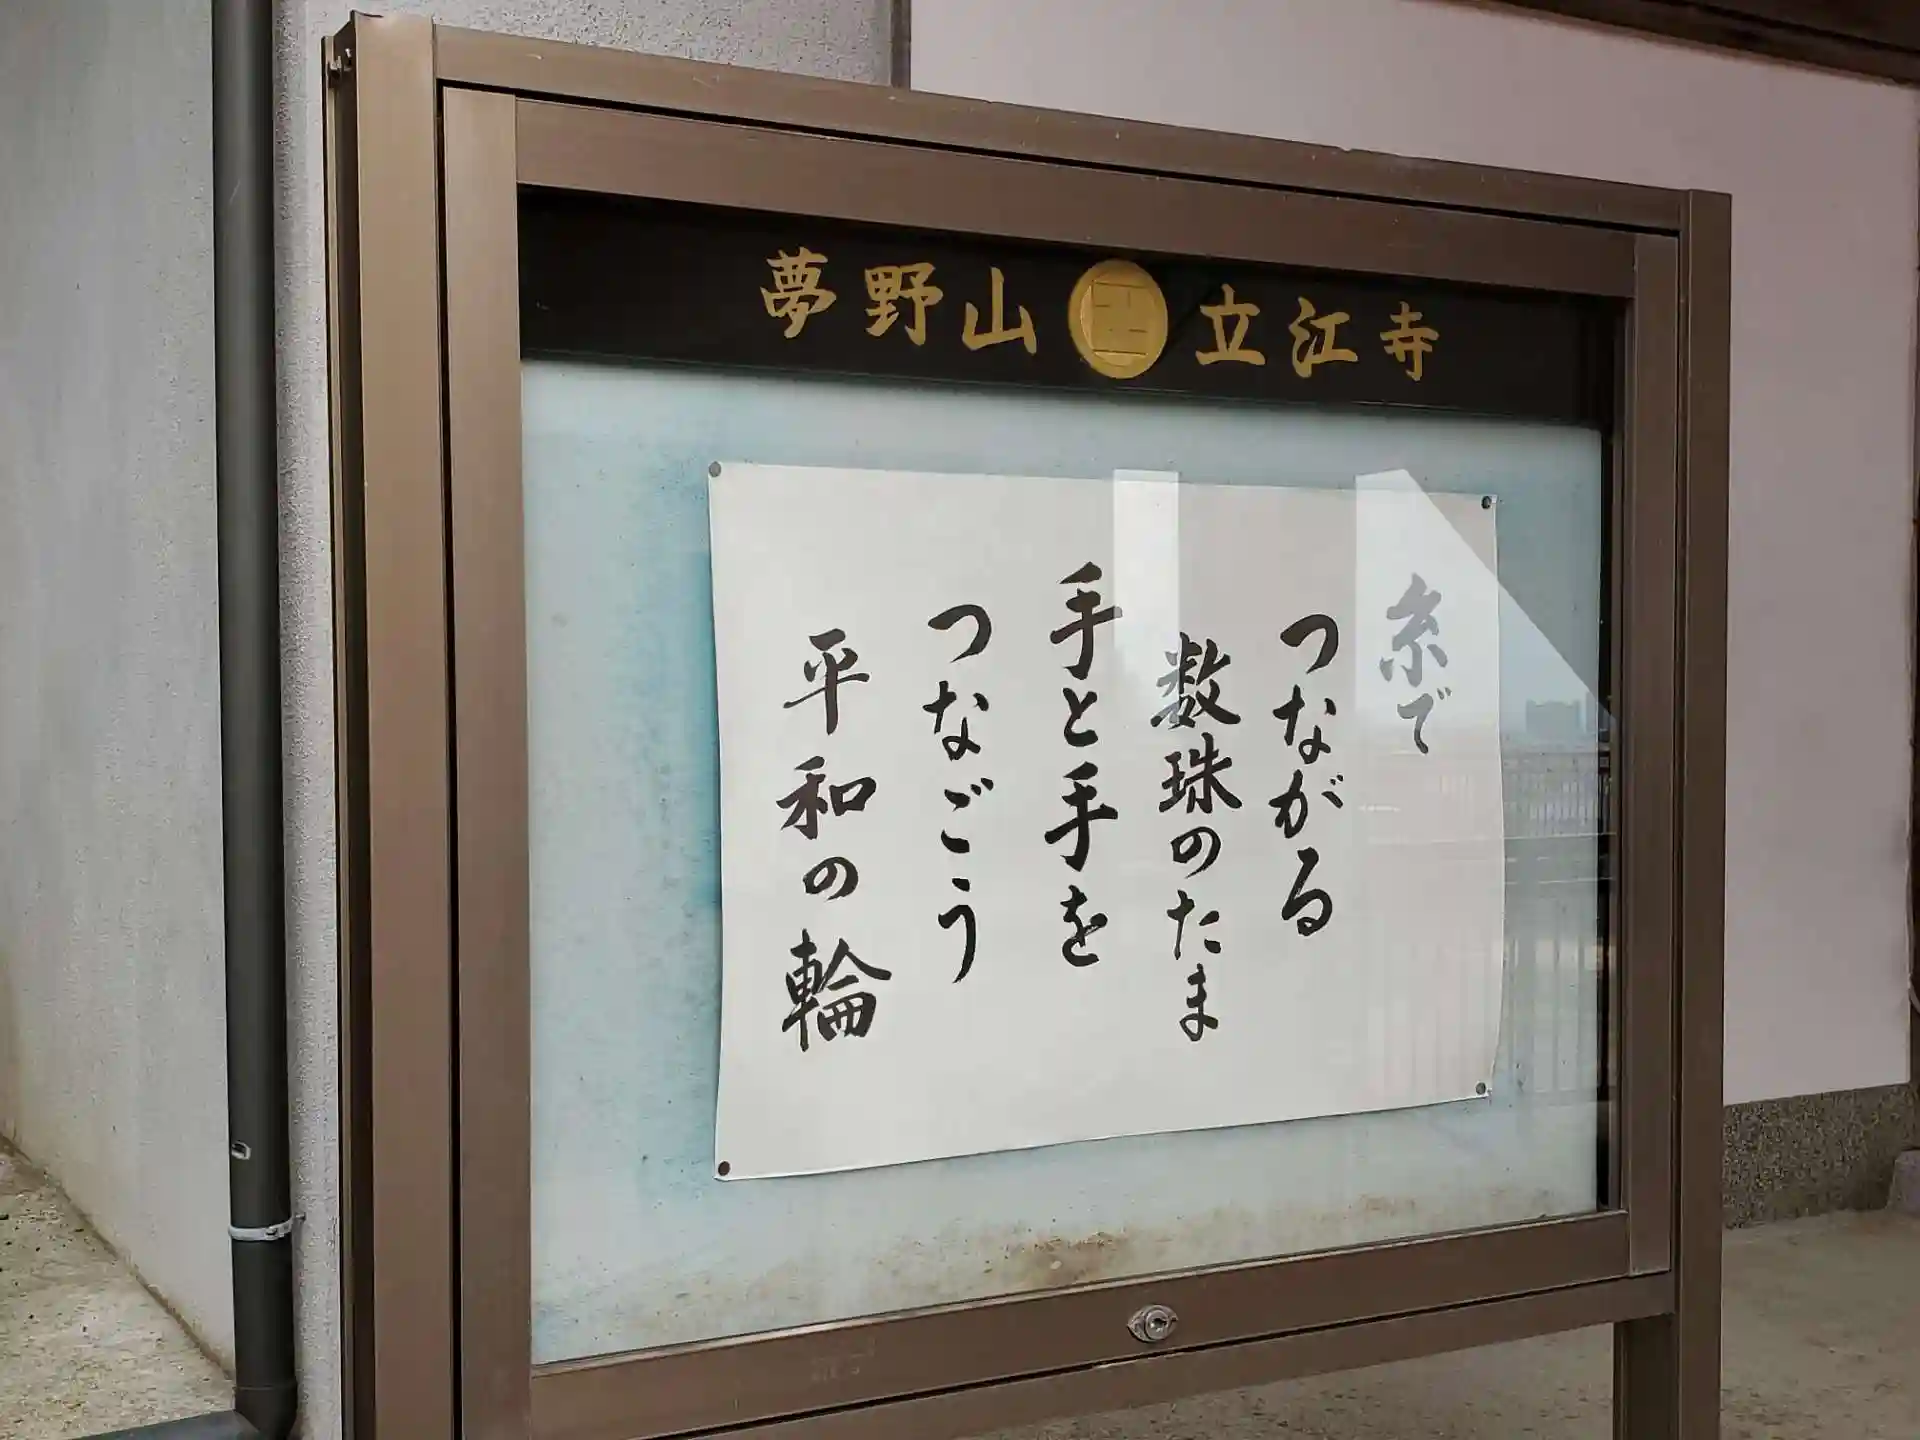 夢野山 卍 立江寺
糸で
つながる
数珠のたま
手と手を
つなごう
平和の輪